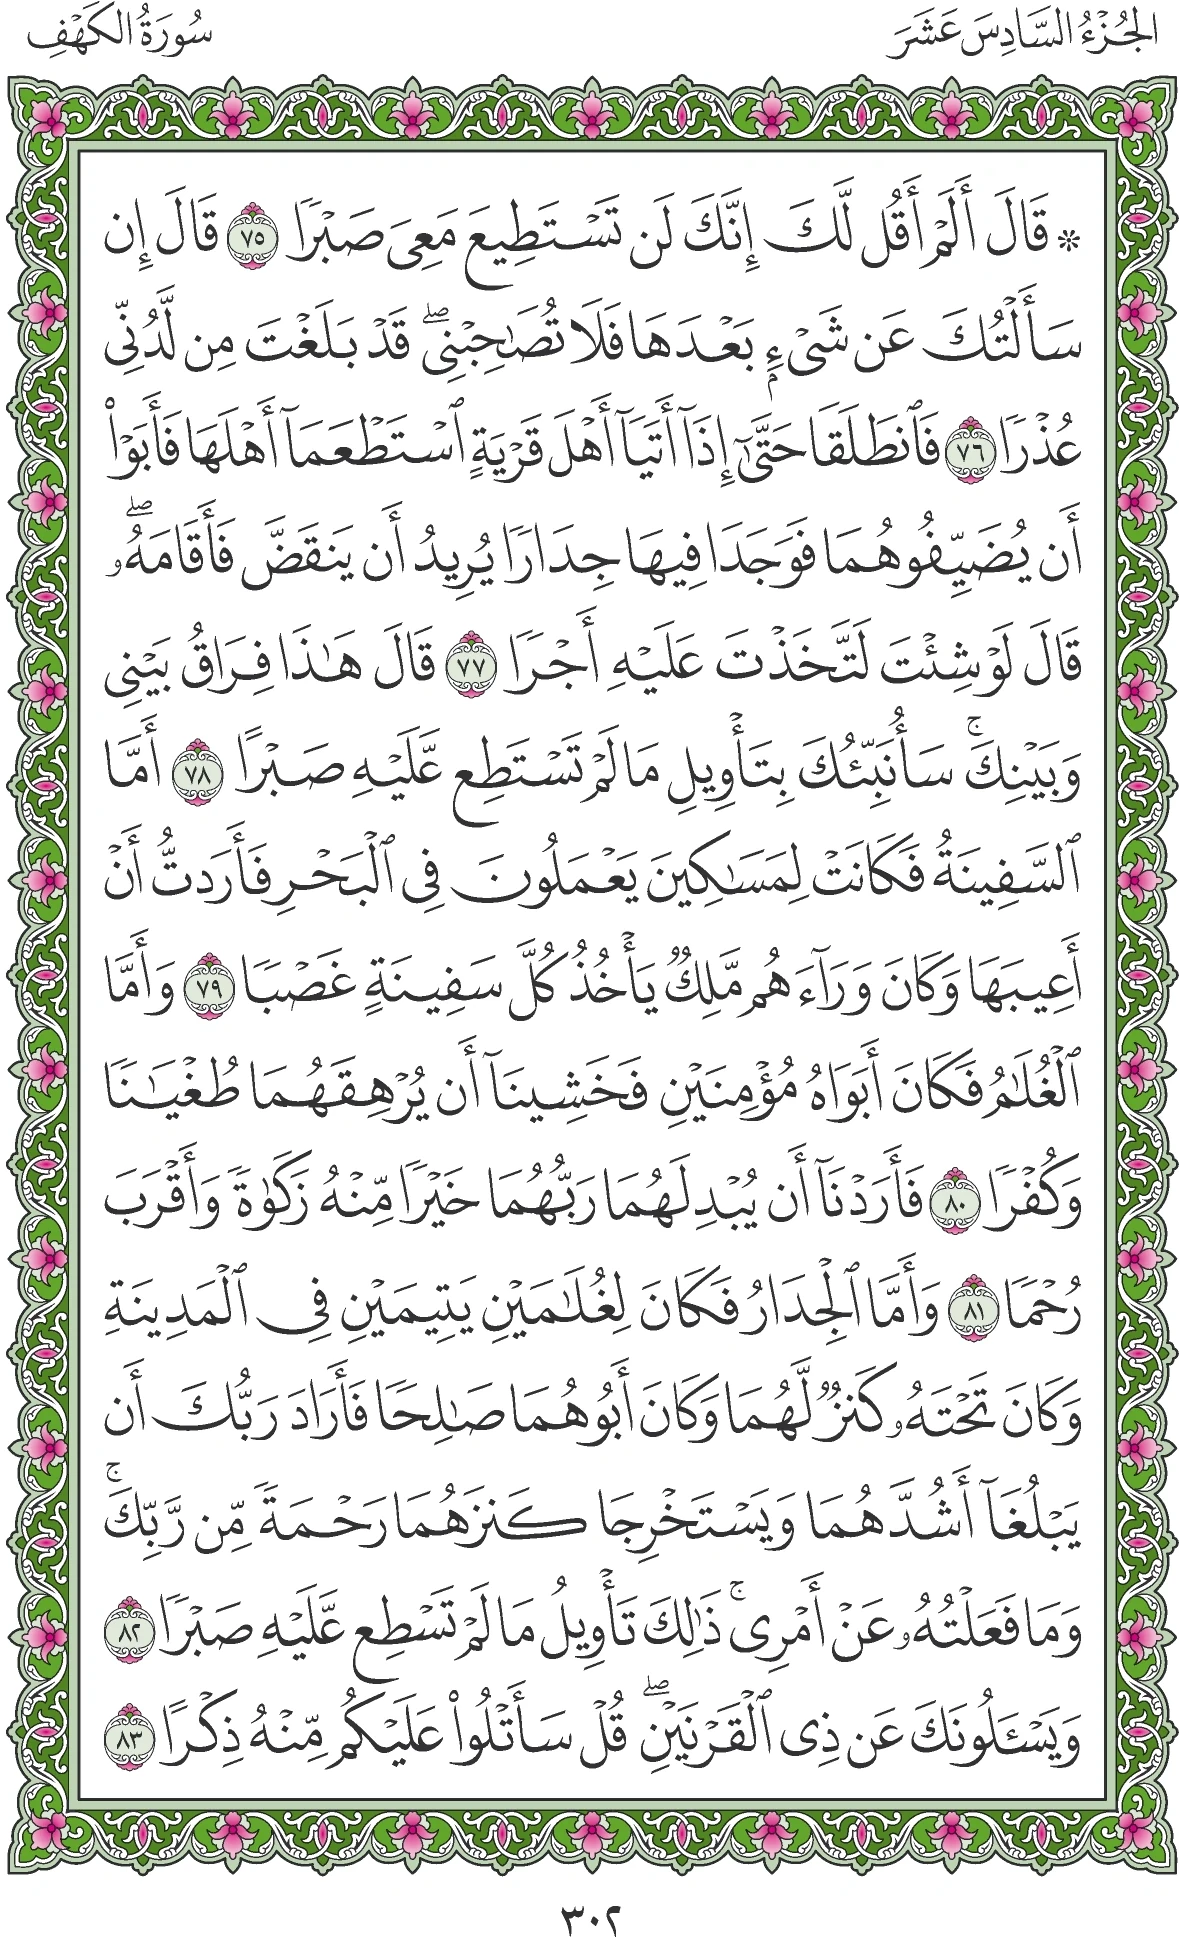 الجُزْءُ السَّادِسَ عَشَرَ
سُورَةُ الكَهْفِ
۞ قَالَ أَلَمْ أَقُل لَّكَ إِنَّكَ لَن تَسْتَطِيعَ مَعِىَ صَبْرًا ٧٥ قَالَ إِن
سَأَلْتُكَ عَن شَىْءٍۭ بَعْدَهَا فَلَا تُصَٰحِبْنِى ۖ قَدْ بَلَغْتَ مِن لَّدُنِّى
عُذْرًا ٧٦ فَٱنطَلَقَا حَتَّىٰٓ إِذَآ أَتَيَآ أَهْلَ قَرْيَةٍ ٱسْتَطْعَمَآ أَهْلَهَا فَأَبَوْا۟
أَن يُضَيِّفُوهُمَا فَوَجَدَا فِيهَا جِدَارًا يُرِيدُ أَن يَنقَضَّ فَأَقَامَهُۥ ۖ
قَالَ لَوْ شِئْتَ لَتَّخَذْتَ عَلَيْهِ أَجْرًا ٧٧ قَالَ هَٰذَا فِرَاقُ بَيْنِى
وَبَيْنِكَ ۚ سَأُنَبِّئُكَ بِتَأْوِيلِ مَا لَمْ تَسْتَطِع عَّلَيْهِ صَبْرًا ٧٨ أَمَّا
ٱلسَّفِينَةُ فَكَانَتْ لِمَسَٰكِينَ يَعْمَلُونَ فِى ٱلْبَحْرِ فَأَرَدتُّ أَنْ
أَعِيبَهَا وَكَانَ وَرَآءَهُم مَّلِكٌ يَأْخُذُ كُلَّ سَفِينَةٍ غَصْبًا ٧٩ وَأَمَّا
ٱلْغُلَٰمُ فَكَانَ أَبَوَاهُ مُؤْمِنَيْنِ فَخَشِينَآ أَن يُرْهِقَهُمَا طُغْيَٰنًا
وَكُفْرًا ٨٠ فَأَرَدْنَآ أَن يُبْدِلَهُمَا رَبُّهُمَا خَيْرًا مِّنْهُ زَكَوٰةً وَأَقْرَبَ
رُحْمًا ٨١ وَأَمَّا ٱلْجِدَارُ فَكَانَ لِغُلَٰمَيْنِ يَتِيمَيْنِ فِى ٱلْمَدِينَةِ
وَكَانَ تَحْتَهُۥ كَنزٌ لَّهُمَا وَكَانَ أَبُوهُمَا صَٰلِحًا فَأَرَادَ رَبُّكَ أَن
يَبْلُغَآ أَشُدَّهُمَا وَيَسْتَخْرِجَا كَنزَهُمَا رَحْمَةً مِّن رَّبِّكَ ۚ
وَمَا فَعَلْتُهُۥ عَنْ أَمْرِى ۚ ذَٰلِكَ تَأْوِيلُ مَا لَمْ تَسْطِع عَّلَيْهِ صَبْرًا ٨٢
وَيَسْـَٔلُونَكَ عَن ذِى ٱلْقَرْنَيْنِ ۖ قُلْ سَأَتْلُوا۟ عَلَيْكُم مِّنْهُ ذِكْرًا ٨٣
٣٠٢